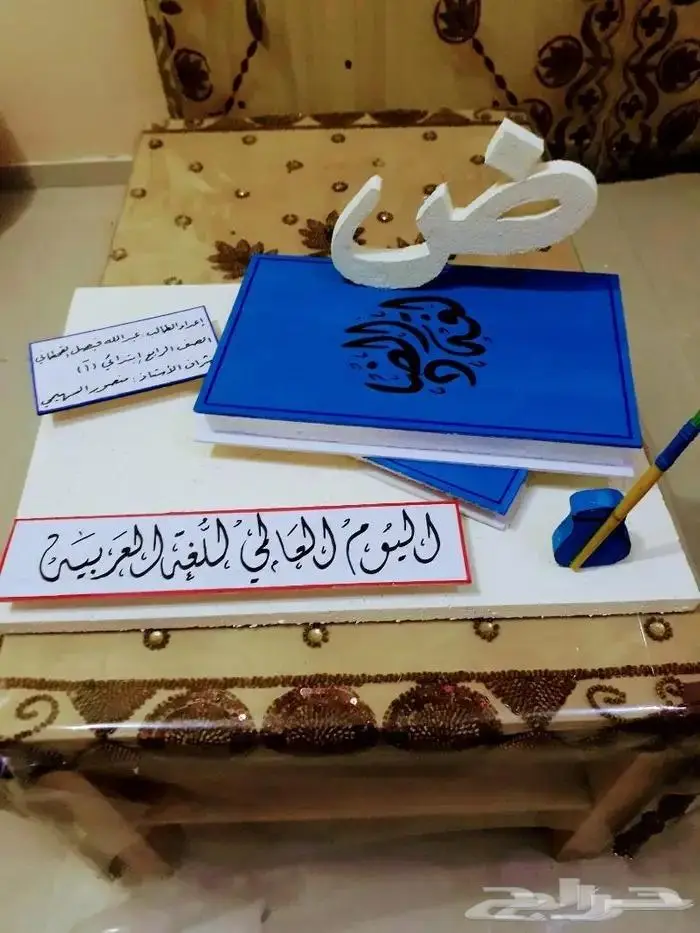 ض
لغتي الضاد
إعداد الطالب: عبدالله فيصل
الصف الرابع إبتدائي (أ)
إشراف الأستاذ: منصور السهيمي
اليوم العالمي للغة العربية
حراج